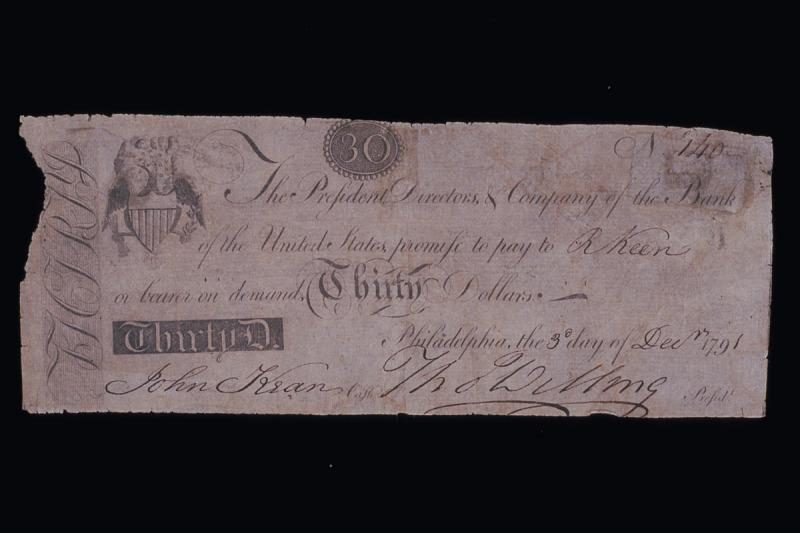 THIRTY D
30
N 140
The President, Directors, & Company of the Bank
of the United States, promise to pay to R Keen
or bearer on demand, Thirty Dollars.
Philadelphia, the 3d day of Decr 1791
Thirty D.
John Kean Cash. Tho Willing Presidt.